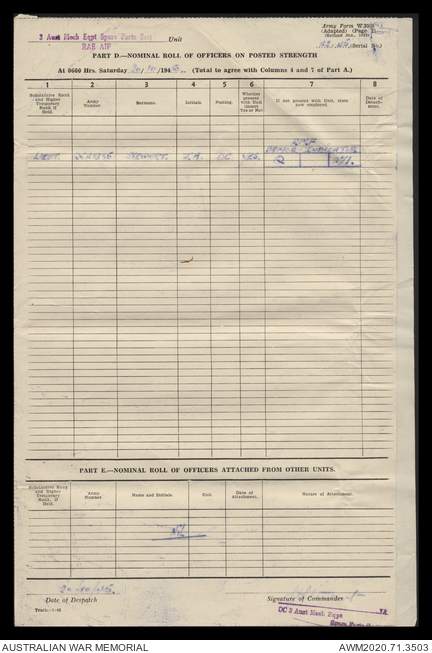 Army Form W.3008
(Adapted) (Page 2)
3 Aust Mech Eqpt Spare Parts Sec Unit
RAE AIF
(Serial No.)
PART D.—NOMINAL ROLL OF OFFICERS ON POSTED STRENGTH
At 0600 Hrs. Saturday 20/10/1945. (Total to agree with Columns 4 and 7 of Part A.)
1 2 3 4 5 6 7 8
Substantive Rank and Higher Temporary Rank if Held. Army Number. Surname. Initials. Posting. Whether present with Unit (Insert Yes or No) If not present with Unit, state how employed. Date of Detachment.
LIEUT. OC YES.
PART E.—NOMINAL ROLL OF OFFICERS ATTACHED FROM OTHER UNITS.
Substantive Rank and Higher Temporary Rank, if Held. Army Number. Name and Initials. Unit. Date of Attachment. Nature of Attachment.
Nil
20/10/45.
Date of Despatch Signature of Commander
OC 3 Aust Mech Eqpt
Spare Parts
AUSTRALIAN WAR MEMORIAL AWM2020.71.3503